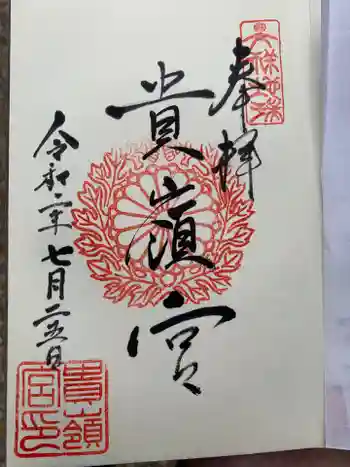 奉拝
貴嶺宮
令和二年七月二五日
貴嶺
宮印